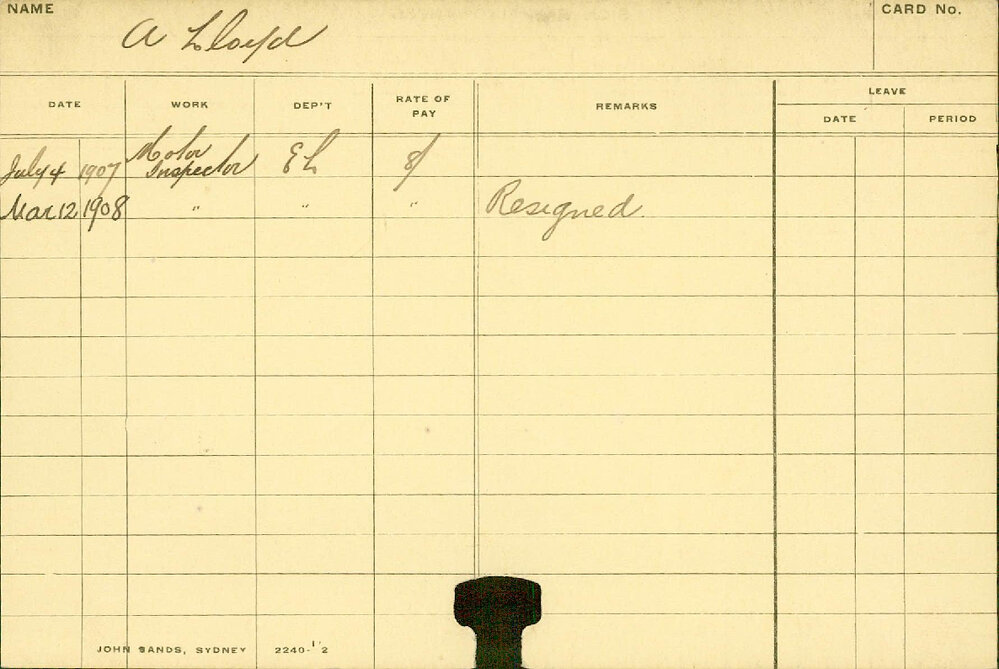 NAME A Lloyd CARD No.
LEAVE
DATE WORK DEP'T RATE OF PAY REMARKS DATE PERIOD
July 4 1907 Motor Inspector EL 8/
Mar 12 1908 " " " Resigned
JOHN SANDS, SYDNEY 2240-1'2